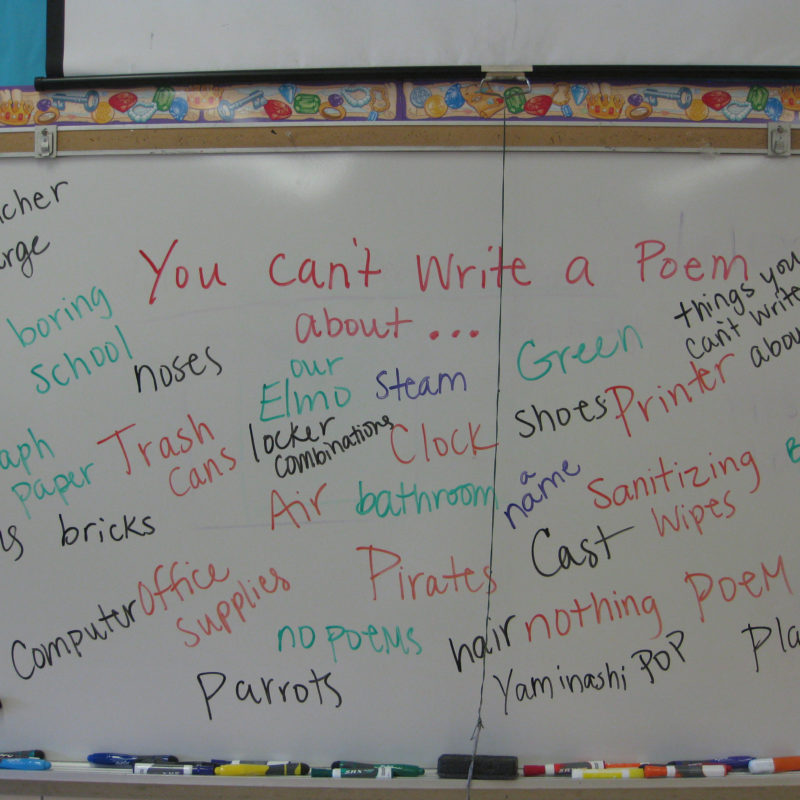 You can't Write a Poem
about...
things you
can't write
boring
School
noses
our
Elmo
Steam
Green
Shoes
Printer
paper
Trash
cans
locker
combinations
Clock
Air
bathroom
a
name
Sanitizing
Wipes
bricks
Cast
Computer
Office
Supplies
Pirates
no poems
hair
nothing
Poem
Parrots
Yaminashi POP